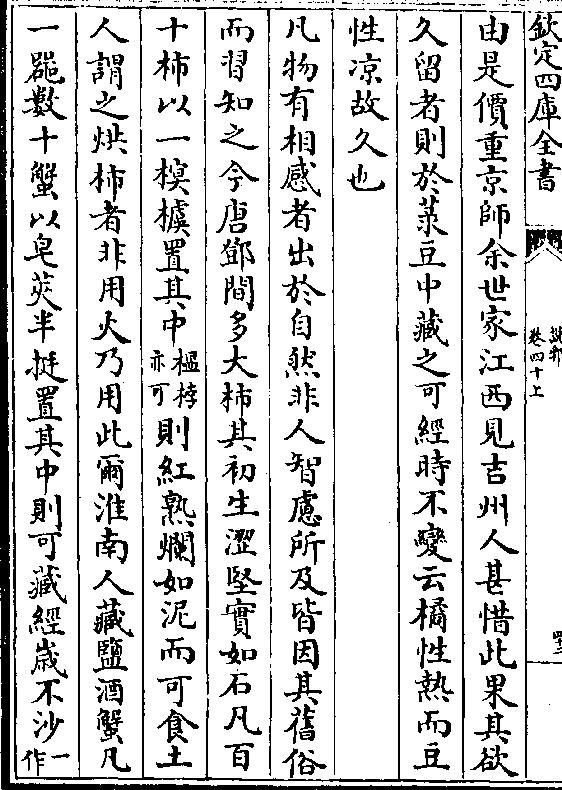 欽定四庫全書
說郛
卷四十上
由是價重京師余世家江西見吉州人甚惜此果其欲
久留者則於菉豆中藏之可經時不變云橘性熱而豆
性凉故久也
凡物有相感者出於自然非人智慮所及皆因其舊俗
而習知之今唐鄧間多大柿其初生澀堅實如石凡百
十柿以一榠樝置其中榲桲亦可則紅熟爛如泥而可食土
人謂之烘柿者非用火乃用此爾淮南人藏鹽酒蟹凡
一噐數十蟹以皂莢半挺置其中則可藏經歲不沙一作